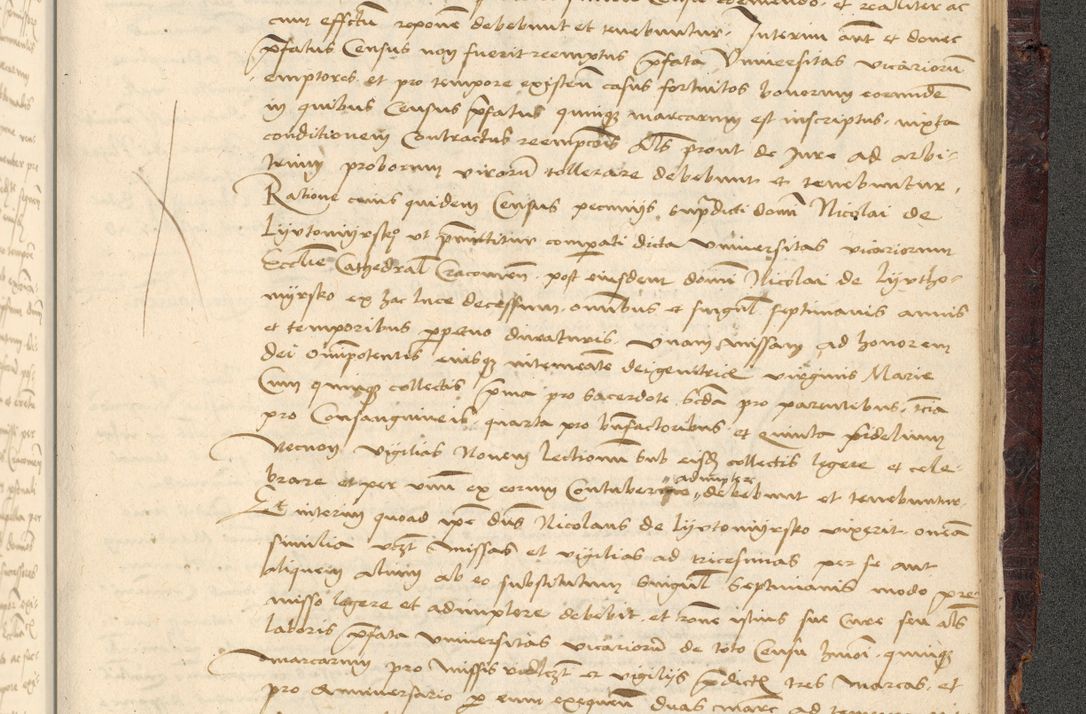 cum effectu reponere debebunt et tenebuntur. Interim aut et donec
prefatus Census non fuerit reemptus prefata Universitas vicariorum
emptores et pro tempore existen casus fortuitos bonorum eorunde
in quibus Census prefatus quinq marcarum est inscriptus iuxta
conditionem Contractus reempcois als prout de Jure ad arbi-
trium proborum virorum tollerare debebunt et tenebuntur.
Ratione cuius quidem Census pecunijs supradicti domi Nicolai de
Lijutomijrsko ut premittitur comparati dicta Universitas vicariorum
Ecclie Cathedral Cracovien post eiusdem domini Nicolai de Lijutho-
mijrsko ex hac luce decessum omibus et singul septimanis annis
et temporibus perpetuo duraturis unam missam ad honorem
dei omipotentis eiusq intemerate deigenetricis virginis Marie
Cum quinq collectis prima pro sacerdote scda pro parentibus tcia
pro Consanguineis quarta pro benefactoribus et Quinta fidelium
Necnon vigilias Novem lectionum sub eisd collectis legere et cele-
brare et per unu ex eorum Contubernio adimplere debebunt et tenebuntur.
Et interim quoad ipse dns Nicolaus de Lijutomijrsko vixerit onera
similia vczt missas et vigilias ad tricesimas per se aut
aliquem alium ab eo substitutum singul septimanis modo pre-
misso legere et adimplere debebit et rone istius sue Cure seu als
laboris prefata universitas vicarioru de toto Censu hmoi quinq
marcarum pro missis videlczt et vigilijs predict tres marcas et
pro anniversario per eum exequen duas marc ad